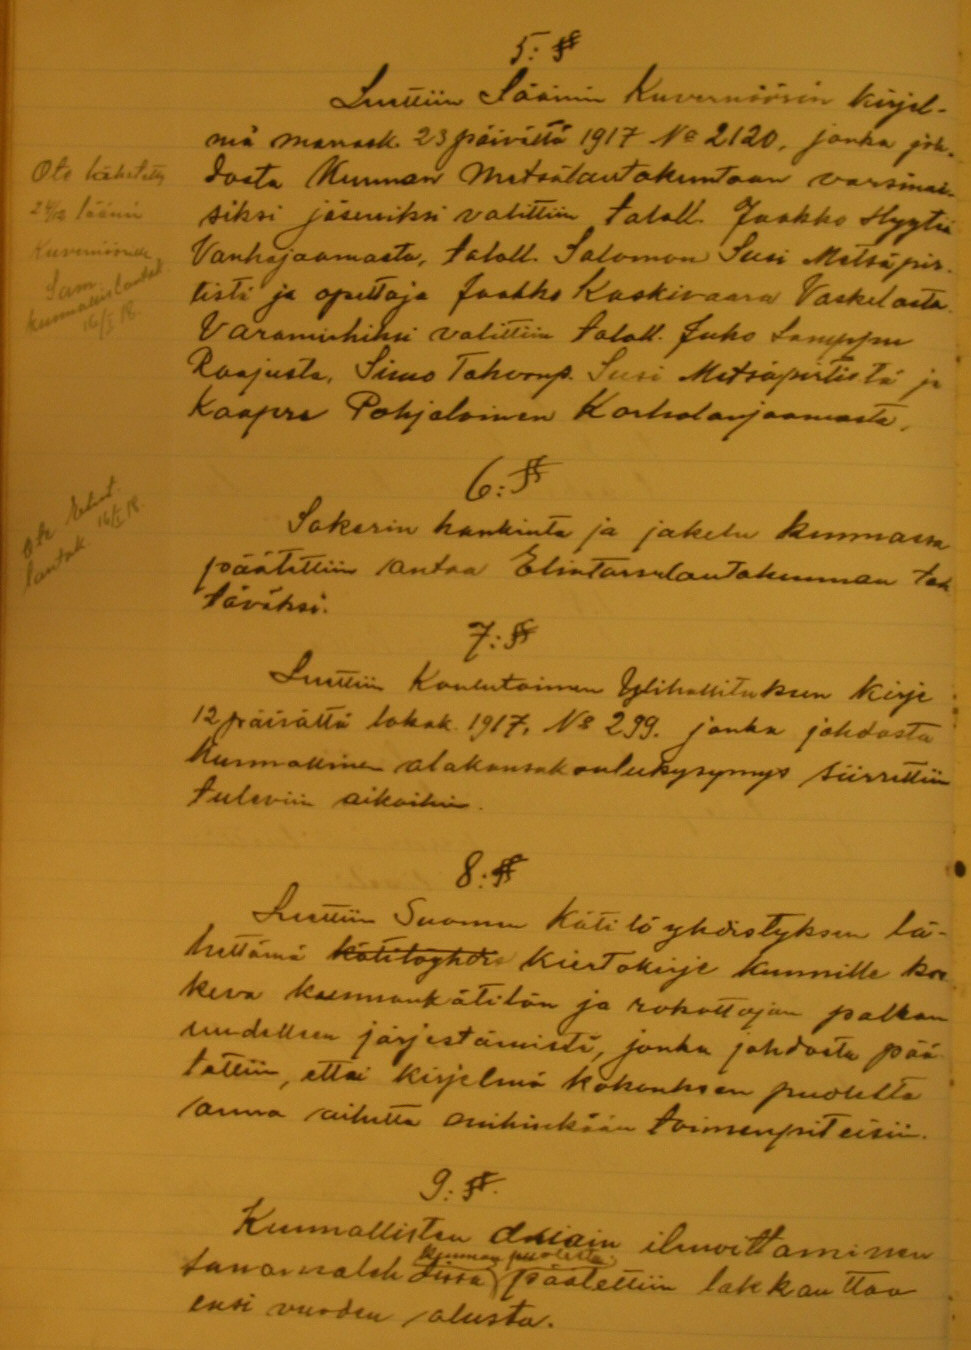 5: §
Luettiin Läänin Kuvernöörin kirjel-
mä marrask. 23 päivältä 1917 No 2120, jonka joh-
dosta Kunnan Metsälautakuntaan varsinai-
siksi jäseniksi valittiin taloll. Jaakko Hyytiä
Vanhajaamasta, taloll. Salomon Susi Metsäpir-
tisti ja opettaja Jaakko Kaskivaara Vaskelasta.
Varamiehiksi valittiin taloll. Juho Lamppu
Raajusta, Simo Tahvonp. Susi Metsäpirtistä ja
Kaapre Pohjalainen Korholanjaamasta.
Ote lähetetty
24/12 läänin
Kuvernöörille
Sam.
kunnallislautak.
16/I 18.
6: §
Sokerin hankinta ja jakelu kunnassa
päätettiin antaa Elintarvelautakunnan teh
täväksi.
Ote Elint.
lautak. 16/I 18.
7: §
Luettiin Koulutoimen Ylihallituksen kirje
12 päivältä lokak. 1917, No 299. jonka johdosta
Kunnallinen alakansakoulukysymys siirrettiin
tuleviin aikoihin.
8: §
Luettiin Suomen Kätilöyhdistyksen lä-
hettämä kätilöyhdis kiertokirje kunnille kos
keva kunnankätilön ja rokottajan palkan
uudelleen järjestämistä, jonka johdosta pää
tettiin, ettei kirjelmä kokouksen puolelta
anna aihetta mihinkään toimenpiteisiin.
9: §.
Kunnallisten asiain ilmoittaminen
kunnan puolesta
sanomalehdissä päätettiin lakkauttaa
ensi vuoden alusta.